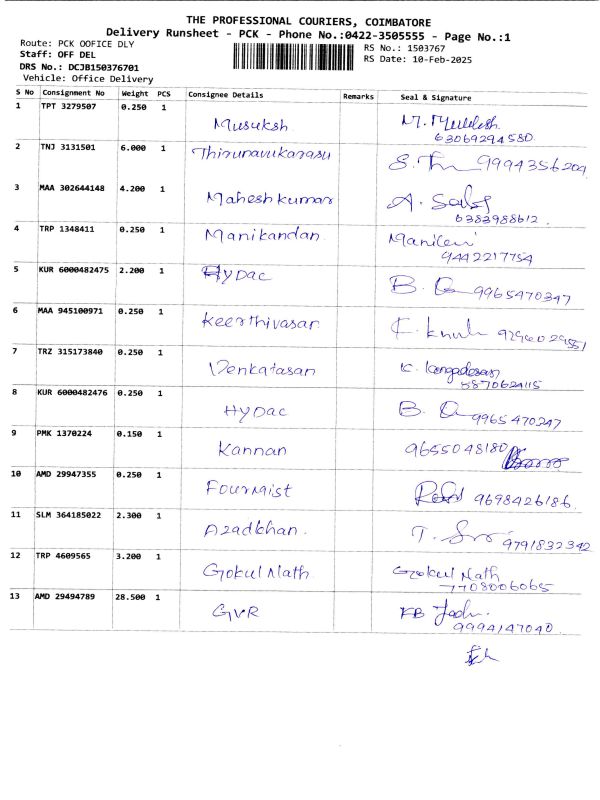 THE PROFESSIONAL COURIERS, COIMBATORE
Delivery Runsheet - PCK - Phone No.:0422-3505555 - Page No.:1
Route: PCK OOFICE DLY
RS No.: 1503767
Staff: OFF DEL
RS Date: 10-Feb-2025
DRS No.: DCJB150376701
Vehicle: Office Delivery
S No Consignment No Weight PCS Consignee Details Remarks Seal & Signature
1 TPT 3279507 0.250 1 Musuksh
63069294580
2 TNJ 3131501 6.000 1 Thirunavukarasu 9994356209
3 MAA 302644148 4.200 1 Mahesh kumar A.
6383988612
4 TRP 1348411 0.250 1 Manikandan
9442217754
5 KUR 6000482475 2.200 1 HyDac B. 9965470347
6 MAA 945100971 0.250 1 Keerthivasan
7 TRZ 315173840 0.250 1 Venkatasan K.
8870624115
8 KUR 6000482476 0.250 1 HyDac B. 9965470247
9 PMK 1370224 0.150 1 Kannan 9655048180
10 AMD 29947355 0.250 1 Fourmist 9698426186
11 SLM 364185022 2.300 1 Azadkhan T. 9791832342
12 TRP 4609565 3.200 1 Gokul Nath Gokul Nath
7708006065
13 AMD 29494789 28.500 1 GVR
9994147040